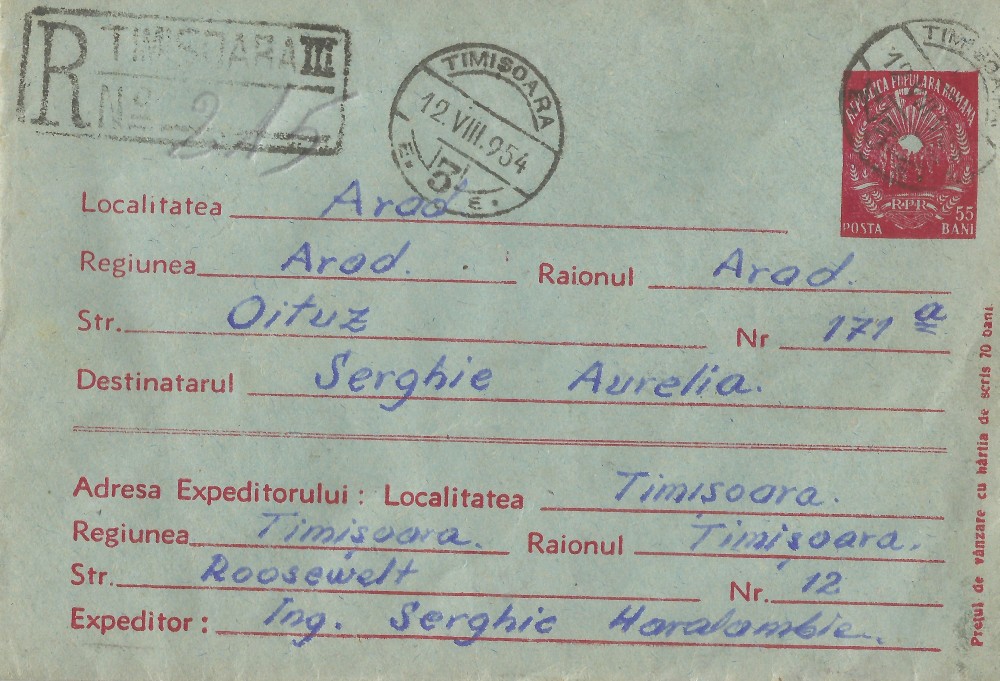 R TIMISOARA III
No 215
TIMIȘOARA
12.VIII.954
E. 3 E.
TIMIȘOARA
REPUBLICA POPULARA ROMANA
RPR
POSTA 55 BANI
Localitatea Arad
Regiunea Arad. Raionul Arad.
Str. Oituz Nr 171 a
Destinatarul Serghie Aurelia.
Adresa Expeditorului : Localitatea Timișoara.
Regiunea Timișoara. Raionul Timișoara.
Str. Roosewelt Nr. 12
Expeditor : Ing. Serghie Haralambie.
Prețul de vânzare cu hârtia de scris 70 bani.